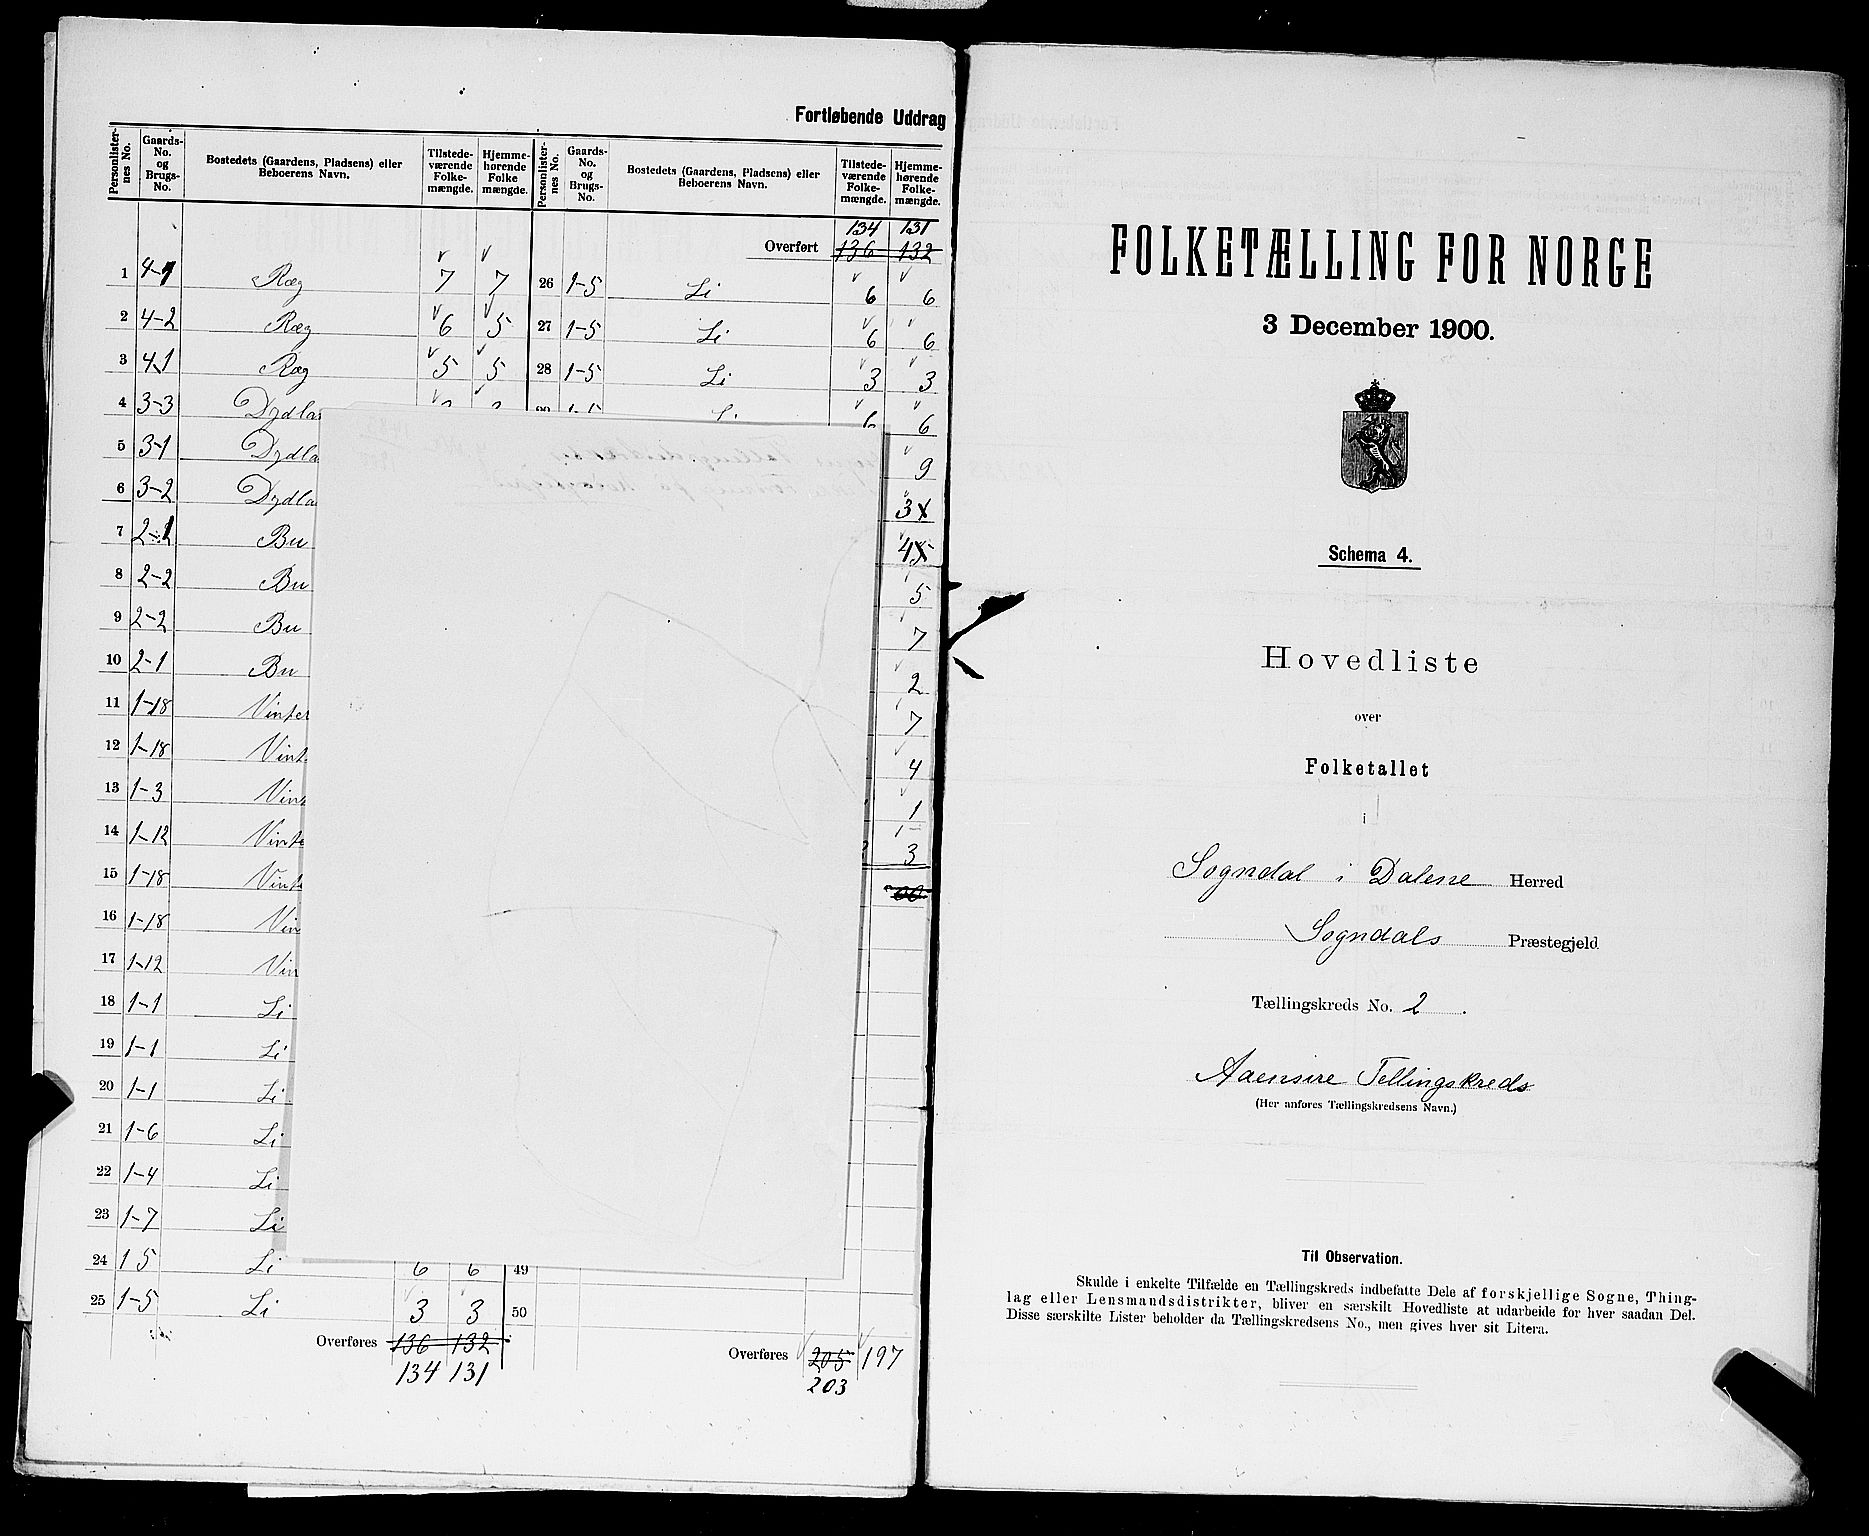 Fortløbende Uddrag
Personlister-nes No. Gaards-No. og Brugs-No. Bostedets (Gaardens, Pladsens) eller Beboerens Navn. Tilstede-værende Folke-mængde. Hjemme-hørende Folke mængde. Personlister-nes No. Gaards-No. og Brugs-No. Bostedets (Gaardens, Pladsens) eller Beboerens Navn. Tilstede-værende Folke-mængde. Hjemme-hørende Folke-mængde.
134 131
Overført 136 132
1 4-1 Ræg 7 7 26 1-5 Li 6 6
2 4-2 Ræg 6 5 27 1-5 Li 6 6
3 4-1 Ræg 5 5 28 1-5 Li 3 3
4 3-3 Dydla 6 6
5 3-1 Dydla 9
6 3-2 Dydla 3
7 2-1 Bu 4
8 2-2 Bu 5
9 2-2 Bu 7
10 2-1 Bu 2
11 1-18 Vinter 7
12 1-18 Vint 4
13 1-3 Vint 1
14 1-12 Vinte 3
15 1-18 Vinte
16 1-18 Vin
17 1-12 Vin
18 1-1 Li
19 1-1 Li
20 1-1 Li
21 1-6 Li
22 1-4 Li
23 1-7 Li
24 1 5 Li 6 6 49
25 1-5 Li 3 3 50
Overføres 136 132 Overføres 205 197
134 131 203
FOLKETÆLLING FOR NORGE
3 December 1900.
Schema 4.
Hovedliste
over
Folketallet
i
Sogndal i Dalene Herred
Sogndals Præstegjeld
Tællingskreds No. 2.
Aaensire Tellingskreds
(Her anføres Tællingskredsens Navn.)
Til Observation.
Skulde i enkelte Tilfælde en Tællingskreds indbefatte Dele af forskjellige Sogne, Thing-
lag eller Lensmandsdistrikter, bliver en særskilt Hovedliste at udarbeide for hver saadan Del.
Disse særskilte Lister beholder da Tællingskredsens No., men gives hver sit Litera.